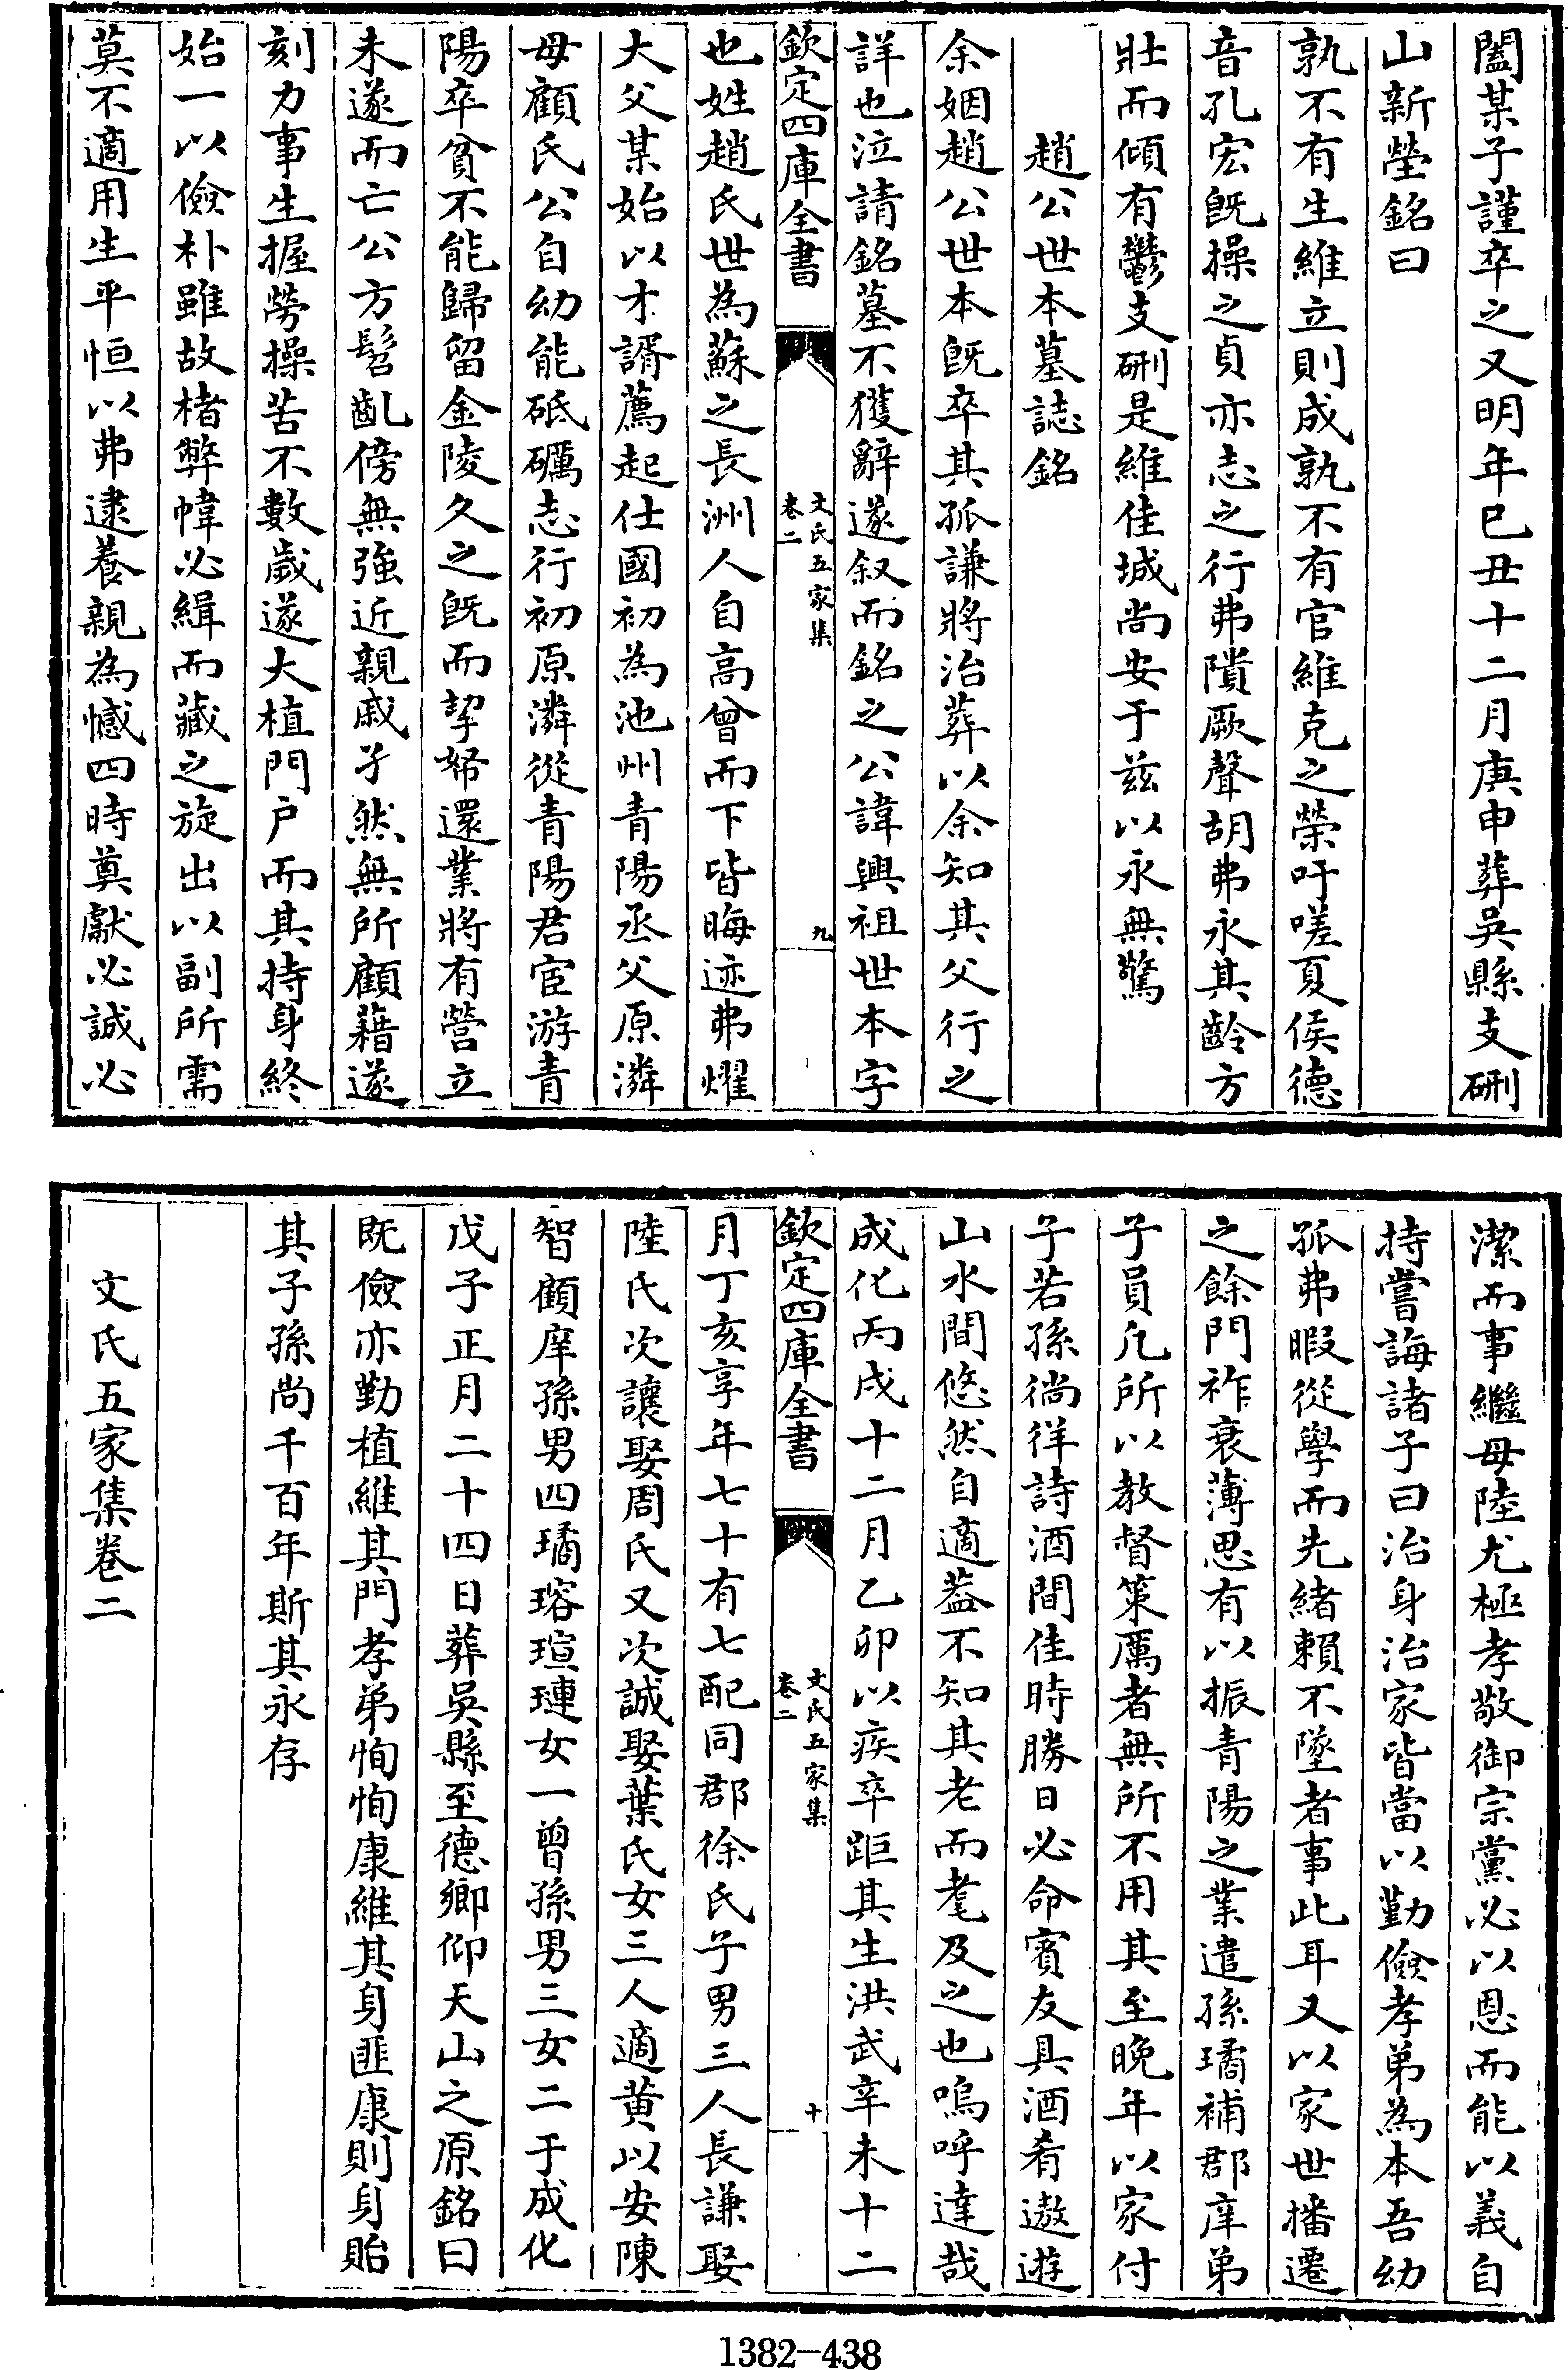 闔某子謹卒之又明年已丑十二月庚申葬吳縣支硎
山新塋銘曰
孰不有生維立則成孰不有官維克之榮吁嗟夏侯德
音孔宏既操之貞亦志之行弗隤厥聲胡弗永其齡方
壯而傾有鬱支硎是維佳城尚安于兹以永無驚
趙公世本墓誌銘
余姻趙公世本既卒其孤謙將治葬以余知其父行之
詳也泣請銘墓不獲辭遂叙而銘之公諱興祖世本字
欽定四庫全書
文氏五家集
卷二
九
也姓趙氏世為蘇之長洲人自高曾而下皆晦迹弗燿
大父某始以才諝薦起仕國初為池州青陽丞父原潾
母顧氏公自幼能砥礪志行初原潾從青陽君宦游青
陽卒貧不能歸留金陵久之既而挈帑還業將有營立
未遂而亡公方髫齓傍無強近親戚孑然無所顧藉遂
刻力事生握勞操苦不數歲遂大植門户而其持身終
始一以儉朴雖故楮弊幃必緝而藏之旋出以副所需
莫不適用生平恒以弗逮養親為憾四時奠獻必誠必
潔而事繼母陸尤極孝敬御宗黨必以恩而能以義自
持嘗誨諸子曰治身治家皆當以勤儉孝弟為本吾幼
孤弗暇從學而先緒賴不墜者事此耳又以家世播遷
之餘門祚衰薄思有以振青陽之業遣孫璚補郡庠弟
子員凡所以教督策厲者無所不用其至晚年以家付
子若孫徜徉詩酒間佳時勝日必命賓友具酒肴遨遊
山水間悠然自適葢不知其老而耄及之也嗚呼達哉
成化丙戌十二月乙卯以疾卒距其生洪武辛未十二
欽定四庫全書
文氏五家集
卷二
十
月丁亥享年七十有七配同郡徐氏子男三人長謙娶
陸氏次讓娶周氏又次誠娶葉氏女三人適黄以安陳
智顧庠孫男四璚瑢瑄璉女一曾孫男三女二于成化
戊子正月二十四日葬吳縣至德鄉仰天山之原銘曰
既儉亦勤植維其門孝弟恂恂康維其身匪康則身貽
其子孫尚千百年斯其永存
文氏五家集卷二
1382-438